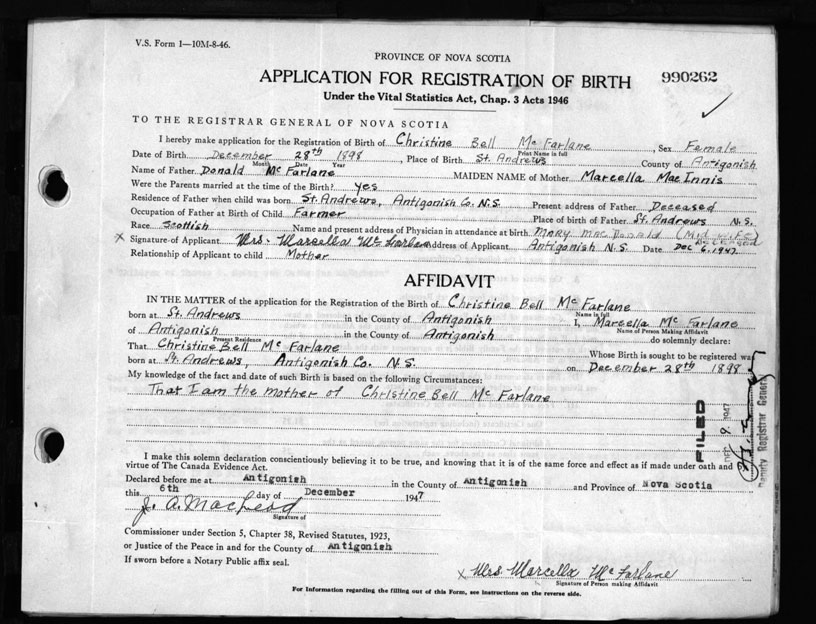 V.S. Form 1—10M-8-46.
PROVINCE OF NOVA SCOTIA
APPLICATION FOR REGISTRATION OF BIRTH 990262
Under the Vital Statistics Act, Chap. 3 Acts 1946
TO THE REGISTRAR GENERAL OF NOVA SCOTIA
I hereby make application for the Registration of Birth of Christine Bell Mc Farlane, Sex Female
Print Name in full
Date of Birth December 28th 1898, Place of Birth St. Andrews County of Antigonish
Month Date Year
Name of Father Donald McFarlane MAIDEN NAME of Mother Marcella MacInnis
Were the Parents married at the time of the Birth? yes
Residence of Father when child was born St. Andrews, Antigonish Co. N.S. Present address of Father Deceased
Occupation of Father at Birth of Child Farmer Place of birth of Father St. Andrews N.S.
Race Scottish Name and present address of Physician in attendance at birth Mary MacDonald (Mid wife) Deceased
x Signature of Applicant Mrs. Marcella McFarlane Address of Applicant Antigonish N.S. Date Dec 6, 1947
Relationship of Applicant to child Mother
AFFIDAVIT
IN THE MATTER of the application for the Registration of the Birth of Christine Bell Mc Farlane
Name in full
born at St. Andrews in the County of Antigonish I, Marcella Mc Farlane
Name of Person Making Affidavit
of Antigonish in the County of Antigonish do solemnly declare:
Present Residence
That Christine Bell Mc Farlane Whose Birth is sought to be registered was
born at St. Andrews, Antigonish Co. N.S. on December 28th 1898
My knowledge of the fact and date of such Birth is based on the following Circumstances:
That I am the mother of Christine Bell Mc Farlane
FILED
9 1947
Deputy Registrar General
I make this solemn declaration conscientiously believing it to be true, and knowing that it is of the same force and effect as if made under oath and
virtue of The Canada Evidence Act.
Declared before me at Antigonish in the County of Antigonish and Province of Nova Scotia
this 6th day of December 1947
J. A. MacLeod
Signature of
Commissioner under Section 5, Chapter 38, Revised Statutes, 1923,
or Justice of the Peace in and for the County of Antigonish
If sworn before a Notary Public affix seal.
x Mrs Marcella McFarlane
Signature of Person making Affidavit
For Information regarding the filling out of this Form, see instructions on the reverse side.